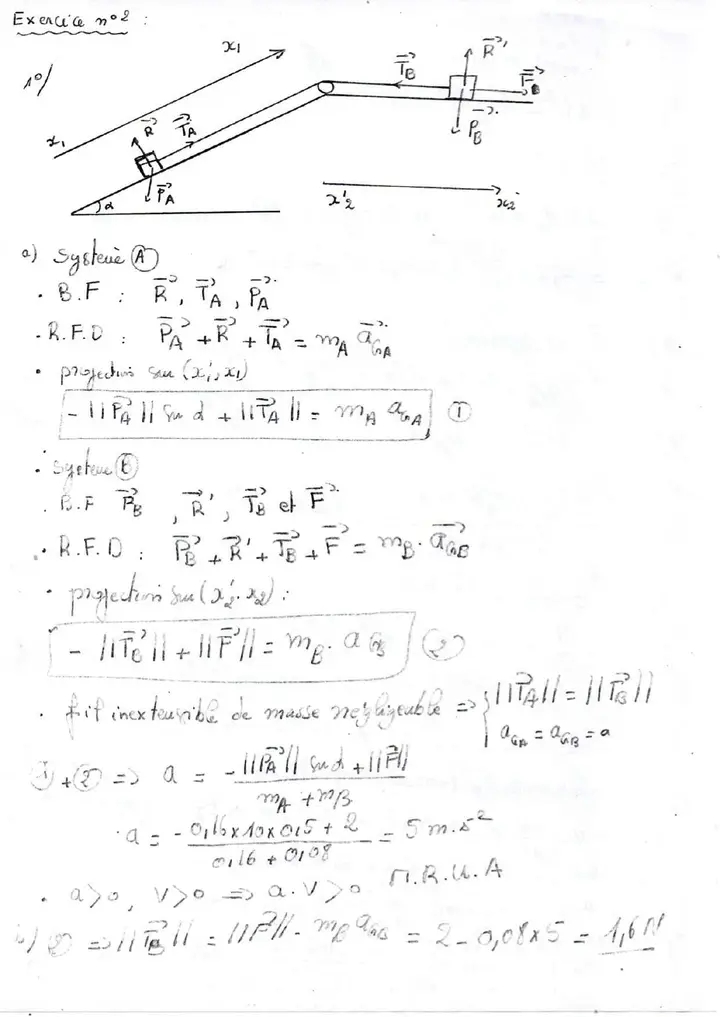 Exercice n°2 :
1°/
x₁
x₁
R⃗
T⃗A
P⃗A
α
T⃗B
R⃗'
F⃗
P⃗B
x'₂
x₂
a) Système Ⓐ
. B.F : R⃗, T⃗A, P⃗A
. R.F.D : P⃗A + R⃗ + T⃗A = mA a⃗GA
. projection sur (x'₁, x₁)
- ||P⃗A|| Sin α + ||T⃗A|| = mA aGA ①
. Système Ⓑ
. B.F P⃗B, R⃗', T⃗B et F⃗
. R.F.D : P⃗B + R⃗' + T⃗B + F⃗ = mB . a⃗GB
. projection sur (x'₂, x₂) :
- ||T⃗B|| + ||F⃗|| = mB . aGB ②
. fil inextensible de masse négligeable => { ||T⃗A|| = ||T⃗B||
aGA = aGB = a
① + ② => a = (- ||P⃗A|| Sin α + ||F⃗||) / (mA + mB)
a = (- 0,16 x 10 x 0,5 + 2) / (0,16 + 0,08) = 5 m.s²
. a>0, V>0 => a.V>0 M.R.U.A
b) ② => ||T⃗B|| = ||F⃗|| - mB aGB = 2 - 0,08x5 = 1,6 N